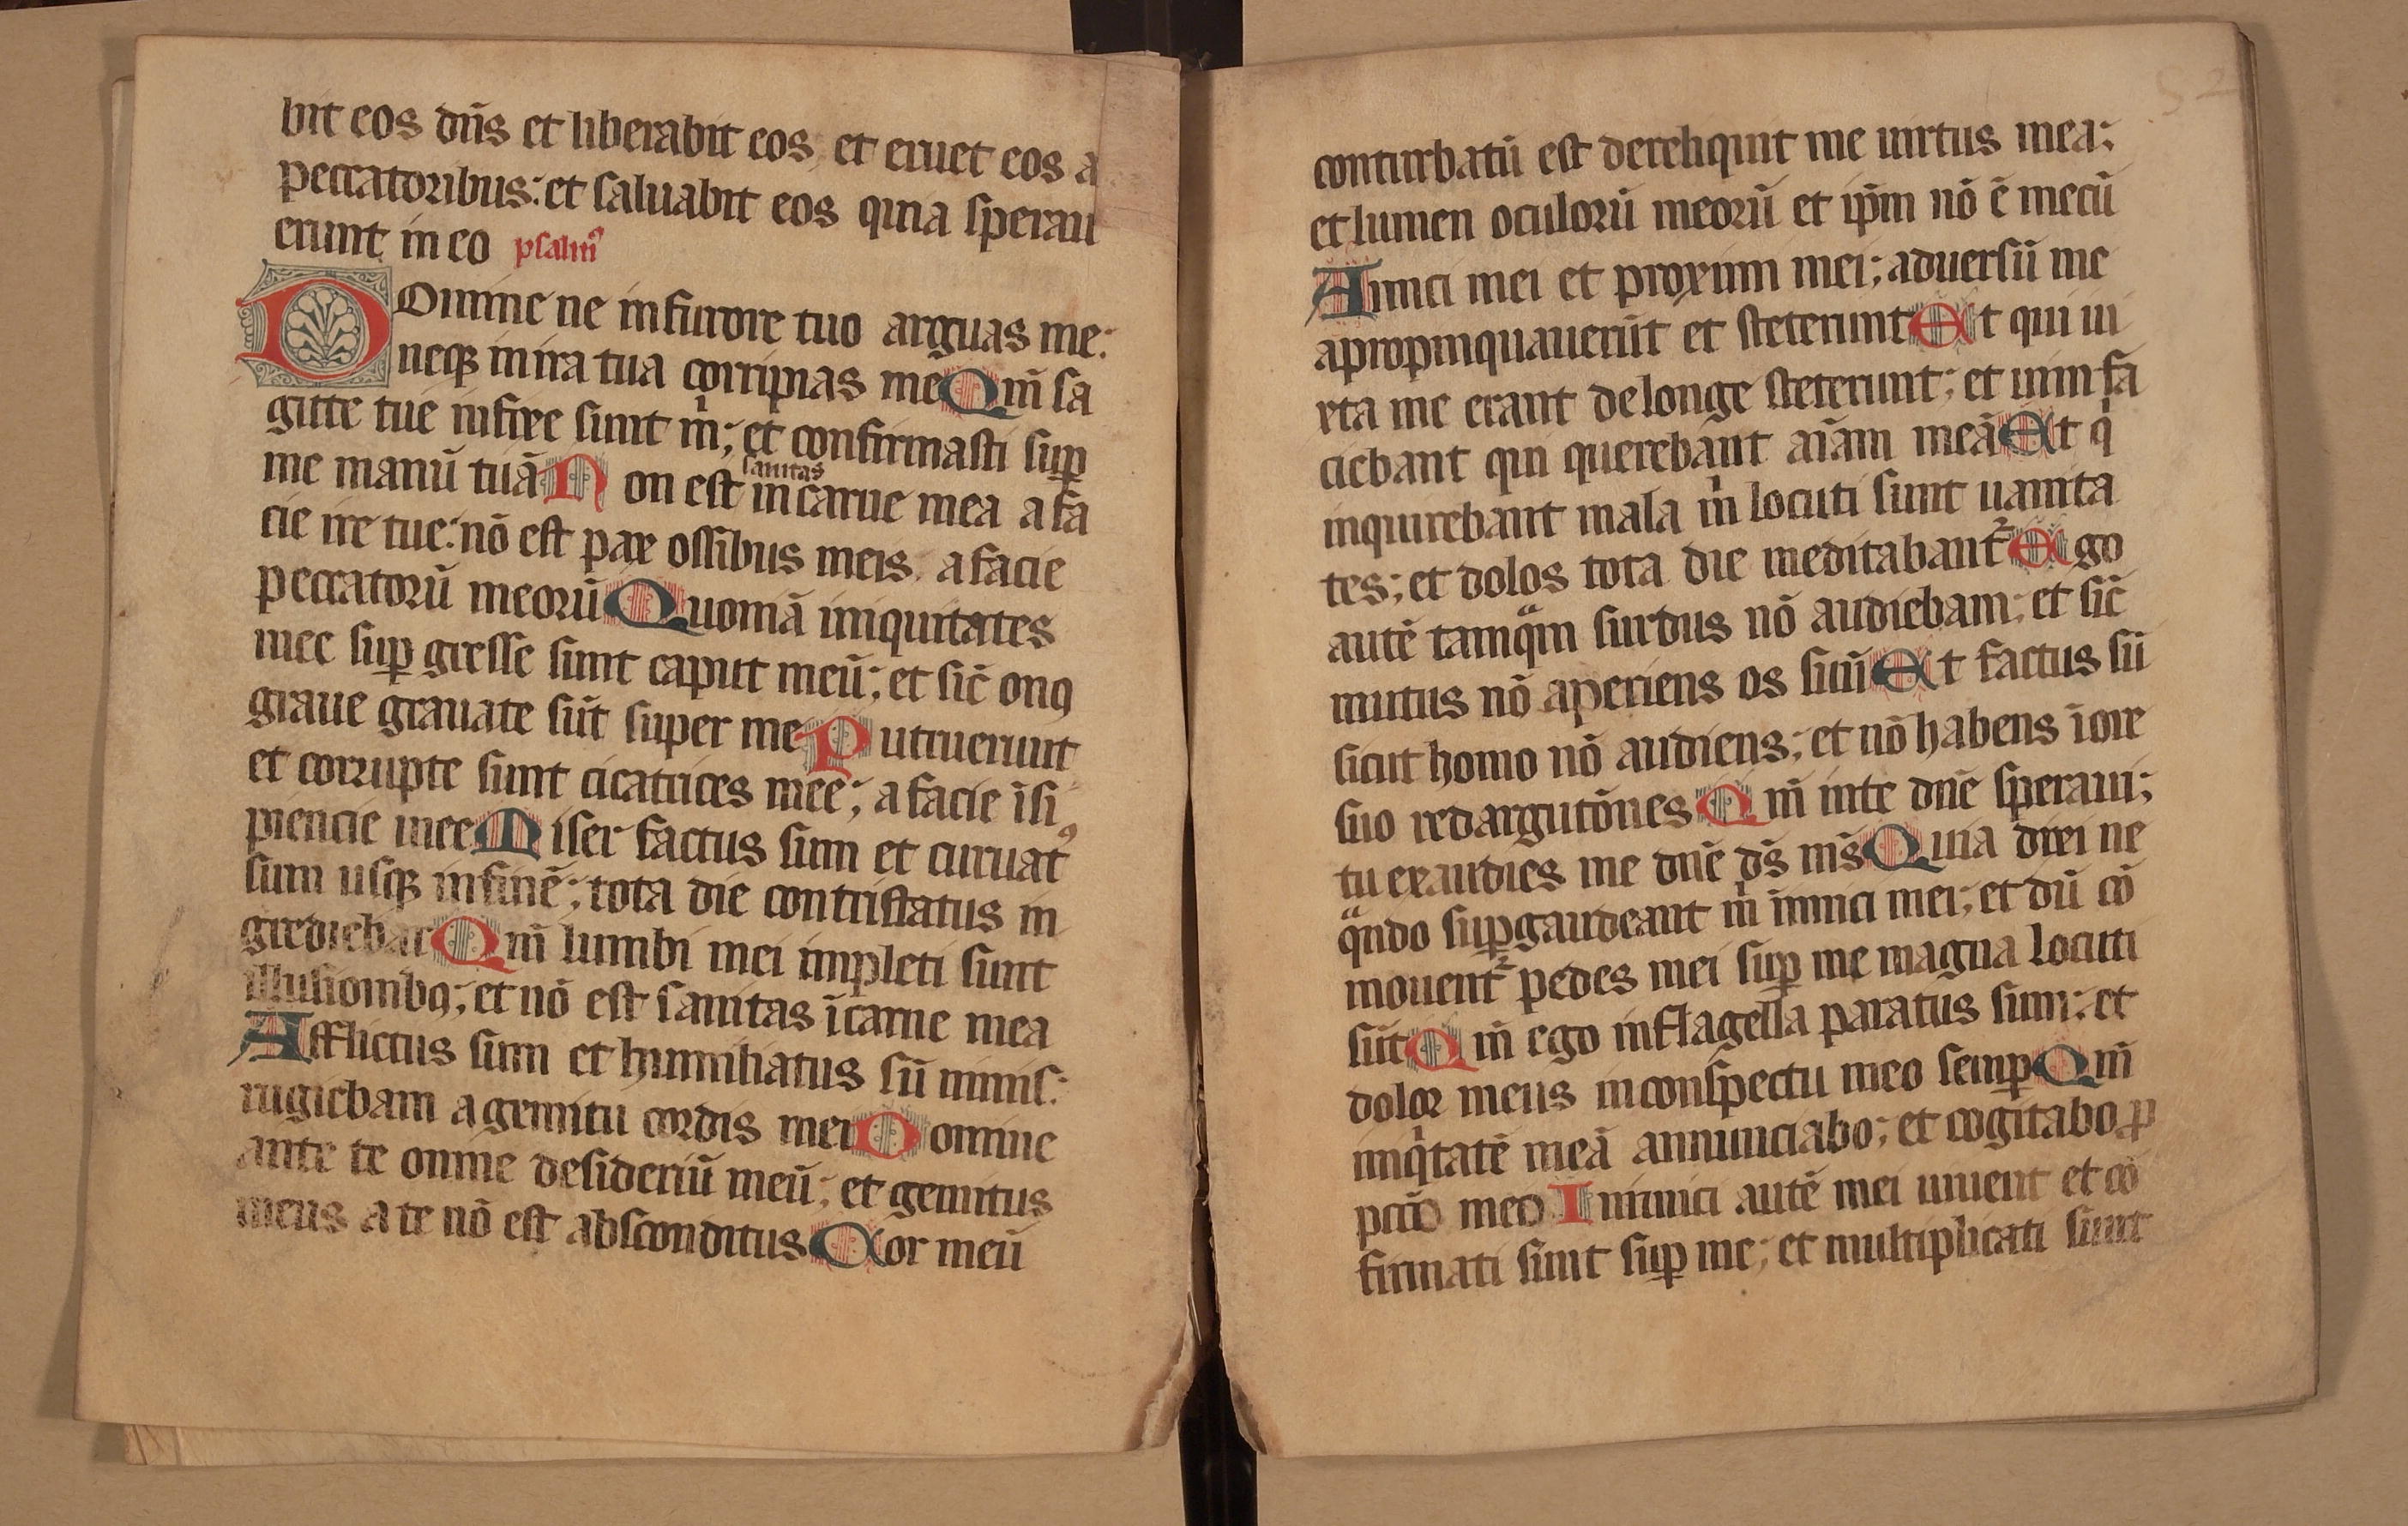 bit eos dn̄s et liberabit eos et eruet eos a
peccatoribus: et saluabit eos quia sperau
erunt in eo psalmꝰ
DOmine ne in furore tuo arguas me:
neqꝫ in ira tua corripias me Qm̄ sa
gitte tue infixe sunt m̍; et confirmasti suꝑ
me manū tuā Non est in carne mea a fa
sanitas
cie ire tue: nō est pax ossibus meis a facie
peccatorū meorū Quoniā iniquitates
mee suꝑ gresse sunt caput meū; et sic̄ onꝰ
graue grauate sūt super me Putruerunt
et corrupte sunt cicatrices mee; a facie īsi
piencie mee Miser factus sum et curuatꝰ
sum usqꝫ in finē; tota die contristatus in
grediebar Qm̄ lumbi mei impleti sunt
illusionibꝰ; et nō est sanitas ī carne mea
Afflictus sum et humiliatus sū nimis:
rugiebam a gemitu cordis mei Domine
ante te omne desideriū meū; et gemitus
meus a te nō est absconditus Cor meū
52
conturbatū est dereliquit me uirtus mea;
et lumen oculorū meorū et ip̄m nō ē mecū
Amici mei et proximi mei; aduersū me
apropinquauerūt et steterunt Et qui iu
xta me erant de longe steterunt; et uim fa
ciebant qui querebant aīam meā Et q̍
inquirebant mala m̍ locuti sunt uanita
tes; et dolos tota die meditabantᷣ Ego
autē tamqᷓm surdus nō audiebam; et sic̄
mutus nō aperiens os suū Et factus sū
sicut homo nō audiens; et nō habens ī ore
suo redargutōnes Qm̄ in te dn̄e speraui;
tu exaudies me dn̄e ds̄ ms̄ Quia dixi ne
qᷓndo suꝑgaudeant m̍ inimici mei; et dū cō
mouentᷣ pedes mei suꝑ me magna locuti
sūt Qm̄ ego in flagella paratus sum: et
dolor meus in conspectu meo semꝑ Qm̄
iniq̍tatē meā annunciabo; et cogitabo ꝓ
pcc̄o meo Inimici autē mei uiuent et cō
firmati sunt suꝑ me; et multiplicati sunt